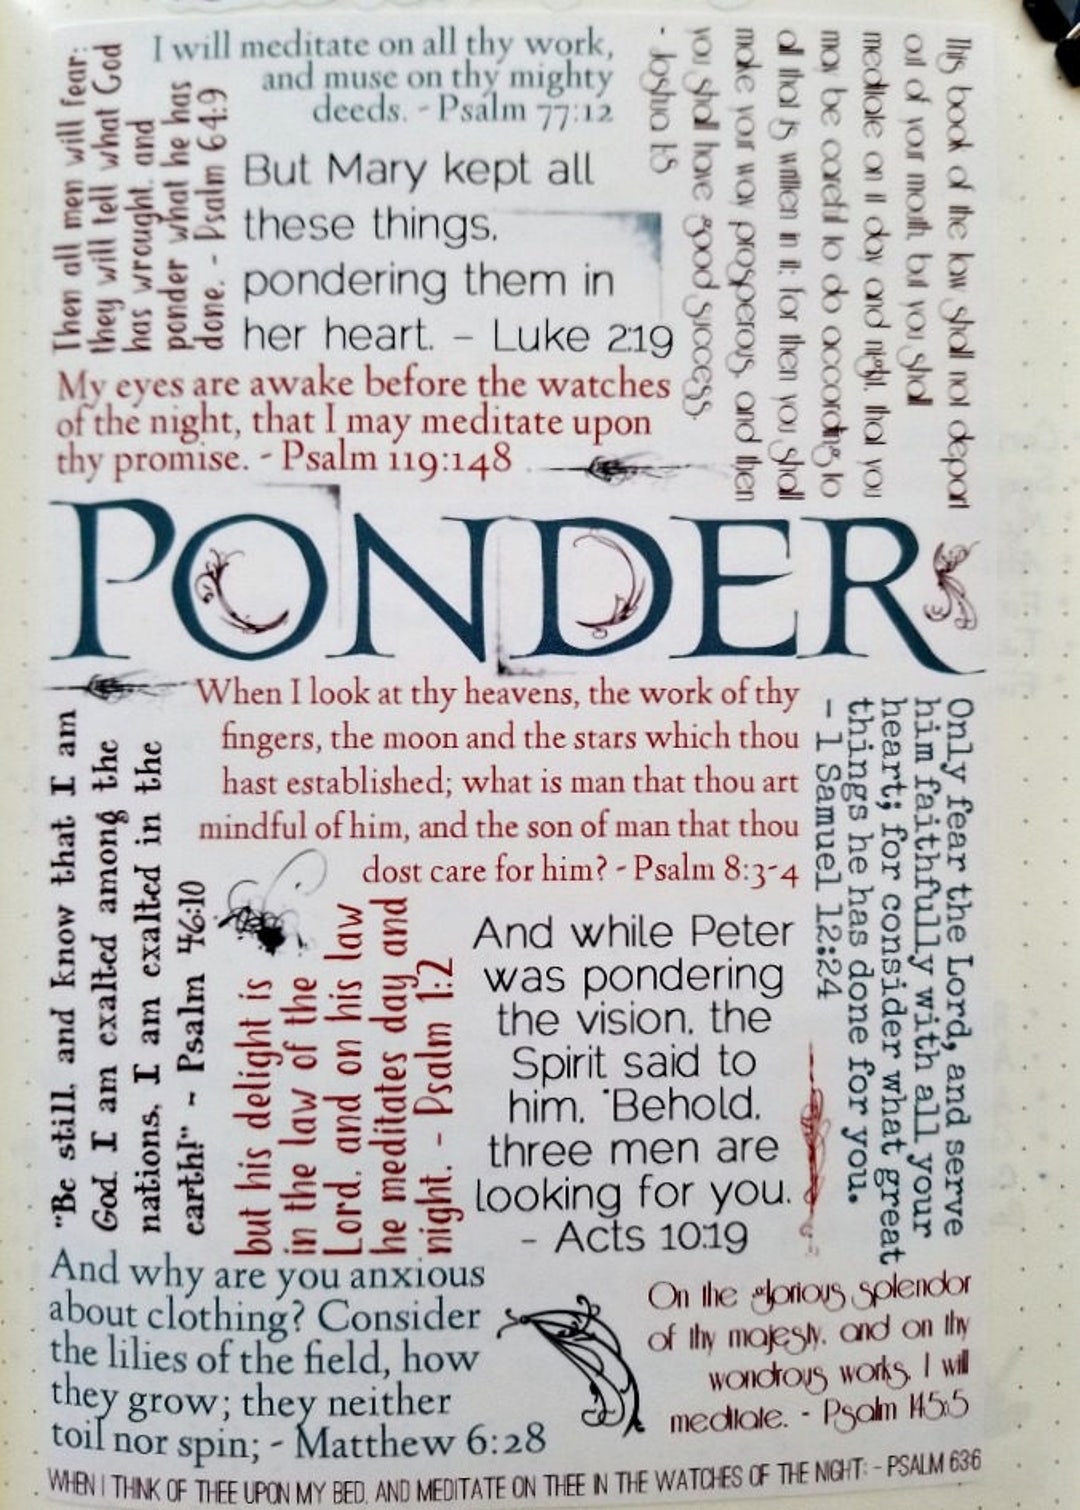 I will meditate on all thy work,
and muse on thy mighty
deeds. - Psalm 77:12
Then all men will fear;
they will tell what God
has wrought, and
ponder what he has
done. - Psalm 64:9
But Mary kept all
these things,
pondering them in
her heart. – Luke 2:19
This book of the law shall not depart
out of your mouth, but you shall
meditate on it day and night, that you
may be careful to do according to
all that is written in it; for then you shall
make your way prosperous, and then
you shall have good success.
- Joshua 1:8
My eyes are awake before the watches
of the night, that I may meditate upon
thy promise. - Psalm 119:148
PONDER
When I look at thy heavens, the work of thy
fingers, the moon and the stars which thou
hast established; what is man that thou art
mindful of him, and the son of man that thou
dost care for him? - Psalm 8:3-4
"Be still, and know that I am
God. I am exalted among the
nations, I am exalted in the
earth!" ~ Psalm 46:10
but his delight is
in the law of the
Lord, and on his law
he meditates day and
night. - Psalm 1:2
And while Peter
was pondering
the vision, the
Spirit said to
him, "Behold,
three men are
looking for you.
- Acts 10:19
Only fear the Lord, and serve
him faithfully with all your
heart; for consider what great
things he has done for you.
- 1 Samuel 12:24
And why are you anxious
about clothing? Consider
the lilies of the field, how
they grow; they neither
toil nor spin; - Matthew 6:28
On the glorious splendor
of thy majesty, and on thy
wondrous works, I will
meditate. - Psalm 145:5
WHEN I THINK OF THEE UPON MY BED, AND MEDITATE ON THEE IN THE WATCHES OF THE NIGHT; - PSALM 63:6